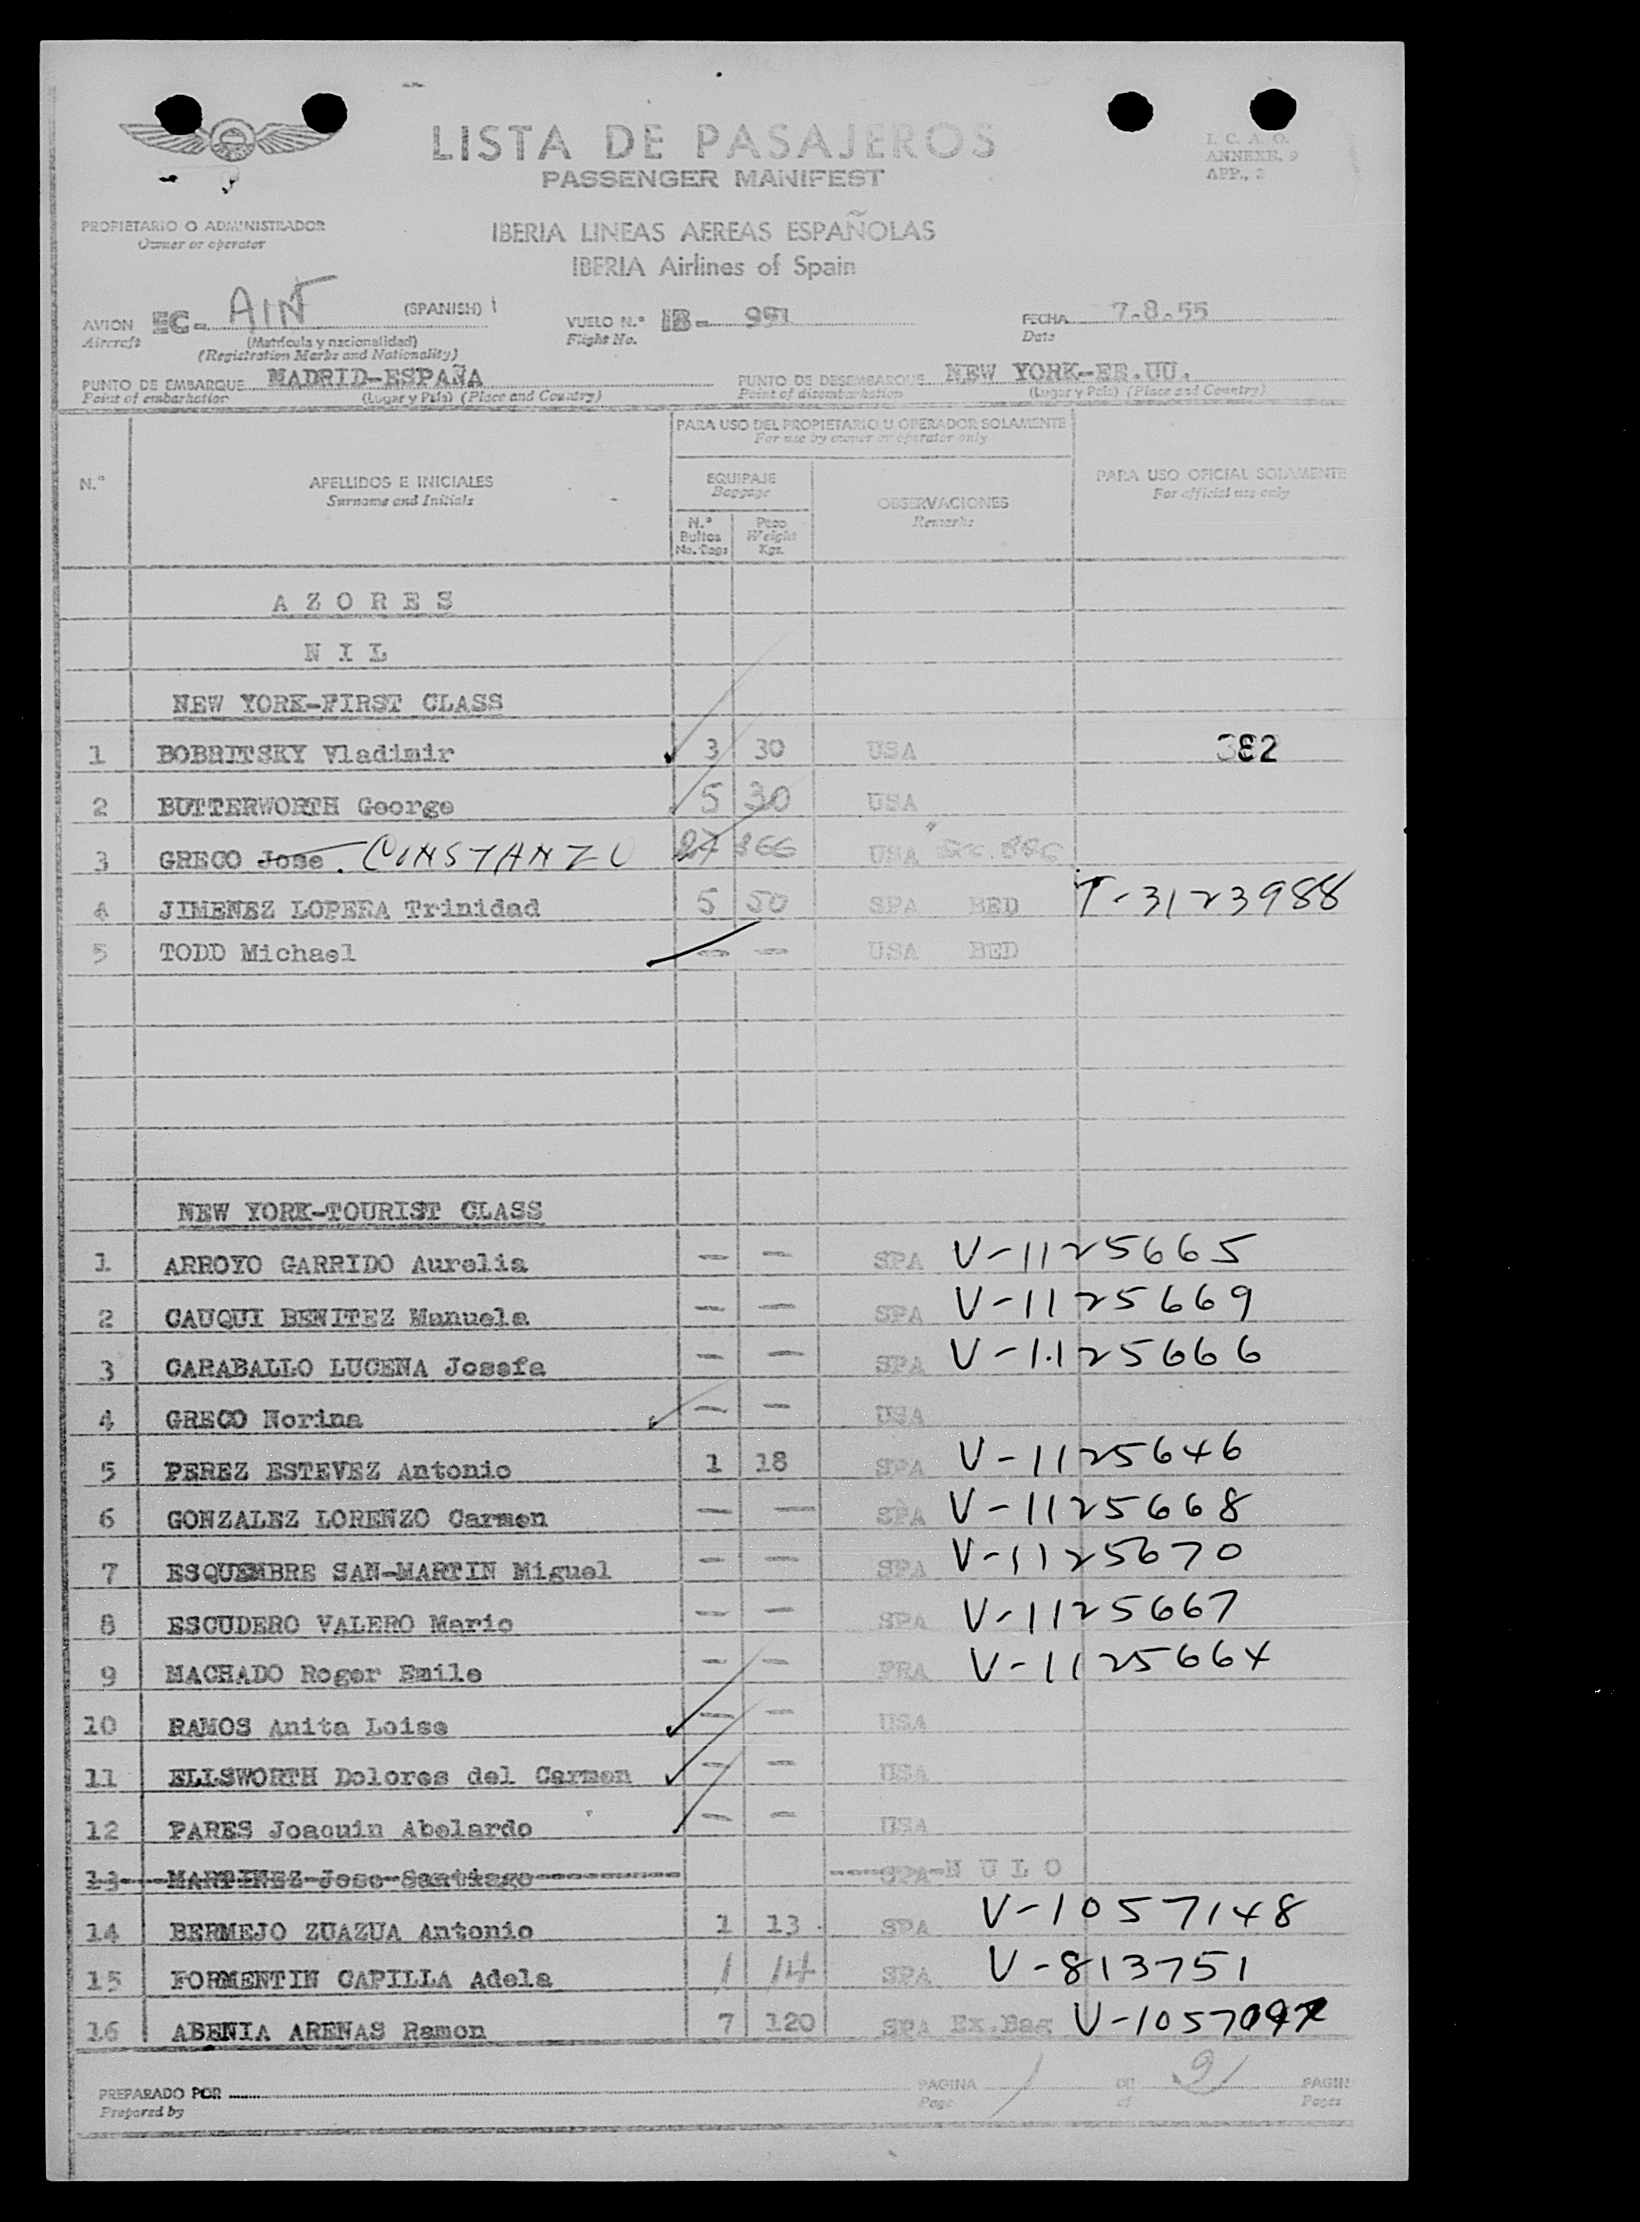 LISTA DE PASAJEROS
PASSENGER MANIFEST
I. C. A. O.
ANNEXE. 9
APP., 2
PROPIETARIO O ADMINISTRADOR
Owner or operator
IBERIA LINEAS AEREAS ESPAÑOLAS
IBERIA Airlines of Spain
AVION EC- AIN (SPANISH) VUELO N.º IB- 991 FECHA 7.8.55
Aircraft (Matrícula y nacionalidad) Flight No. Date
(Registration Marks and Nationality)
PUNTO DE EMBARQUE MADRID-ESPAÑA PUNTO DE DESEMBARQUE NEW YORK-EE.UU.
Point of embarkation (Lugar y País) (Place and Country) Point of disembarkation (Lugar y País) (Place and Country)
PARA USO DEL PROPIETARIO U OPERADOR SOLAMENTE
For use by owner or operator only
N.º APELLIDOS E INICIALES EQUIPAJE OBSERVACIONES PARA USO OFICIAL SOLAMENTE
Surname and Initials Baggage Remarks For official use only
N.º Bultos Peso
No. Bags Weight Kgs.
AZORES
NIL
NEW YORK-FIRST CLASS
1 BOBRITSKY Vladimir 3 30 USA 382
2 BUTTERWORTH George 5 30 USA
3 GRECO Jose. CONSTANZO 27 366 USA
4 JIMENEZ LOPERA Trinidad 5 50 SPA BED T-3123988
5 TODD Michael - - USA BED
NEW YORK-TOURIST CLASS
1 ARROYO GARRIDO Aurelia - - SPA V-1125665
2 CAUQUI BENITEZ Manuela - - SPA V-1125669
3 CARABALLO LUCENA Josefa - - SPA V-1125666
4 GRECO Norina - - USA
5 PEREZ ESTEVEZ Antonio 1 18 SPA V-1125646
6 GONZALEZ LORENZO Carmen - - SPA V-1125668
7 ESQUEMBRE SAN-MARTIN Miguel - - SPA V-1125670
8 ESCUDERO VALERO Mario - - SPA V-1125667
9 MACHADO Roger Emile - - FRA V-1125664
10 RAMOS Anita Loise - - USA
11 ELLSWORTH Dolores del Carmen - - USA
12 PARES Joaquin Abelardo - - USA
13 MARTINEZ Jose Santiago SPA NULO
14 BERMEJO ZUAZUA Antonio 1 13 SPA V-1057148
15 FORMENTIN CAPILLA Adela 1 14 SPA V-813751
16 ABENIA ARENAS Ramon 7 120 SPA Ex.Bag
PREPARADO POR PAGINA 1 DE 2 PAGIN
Prepared by Page of Pages